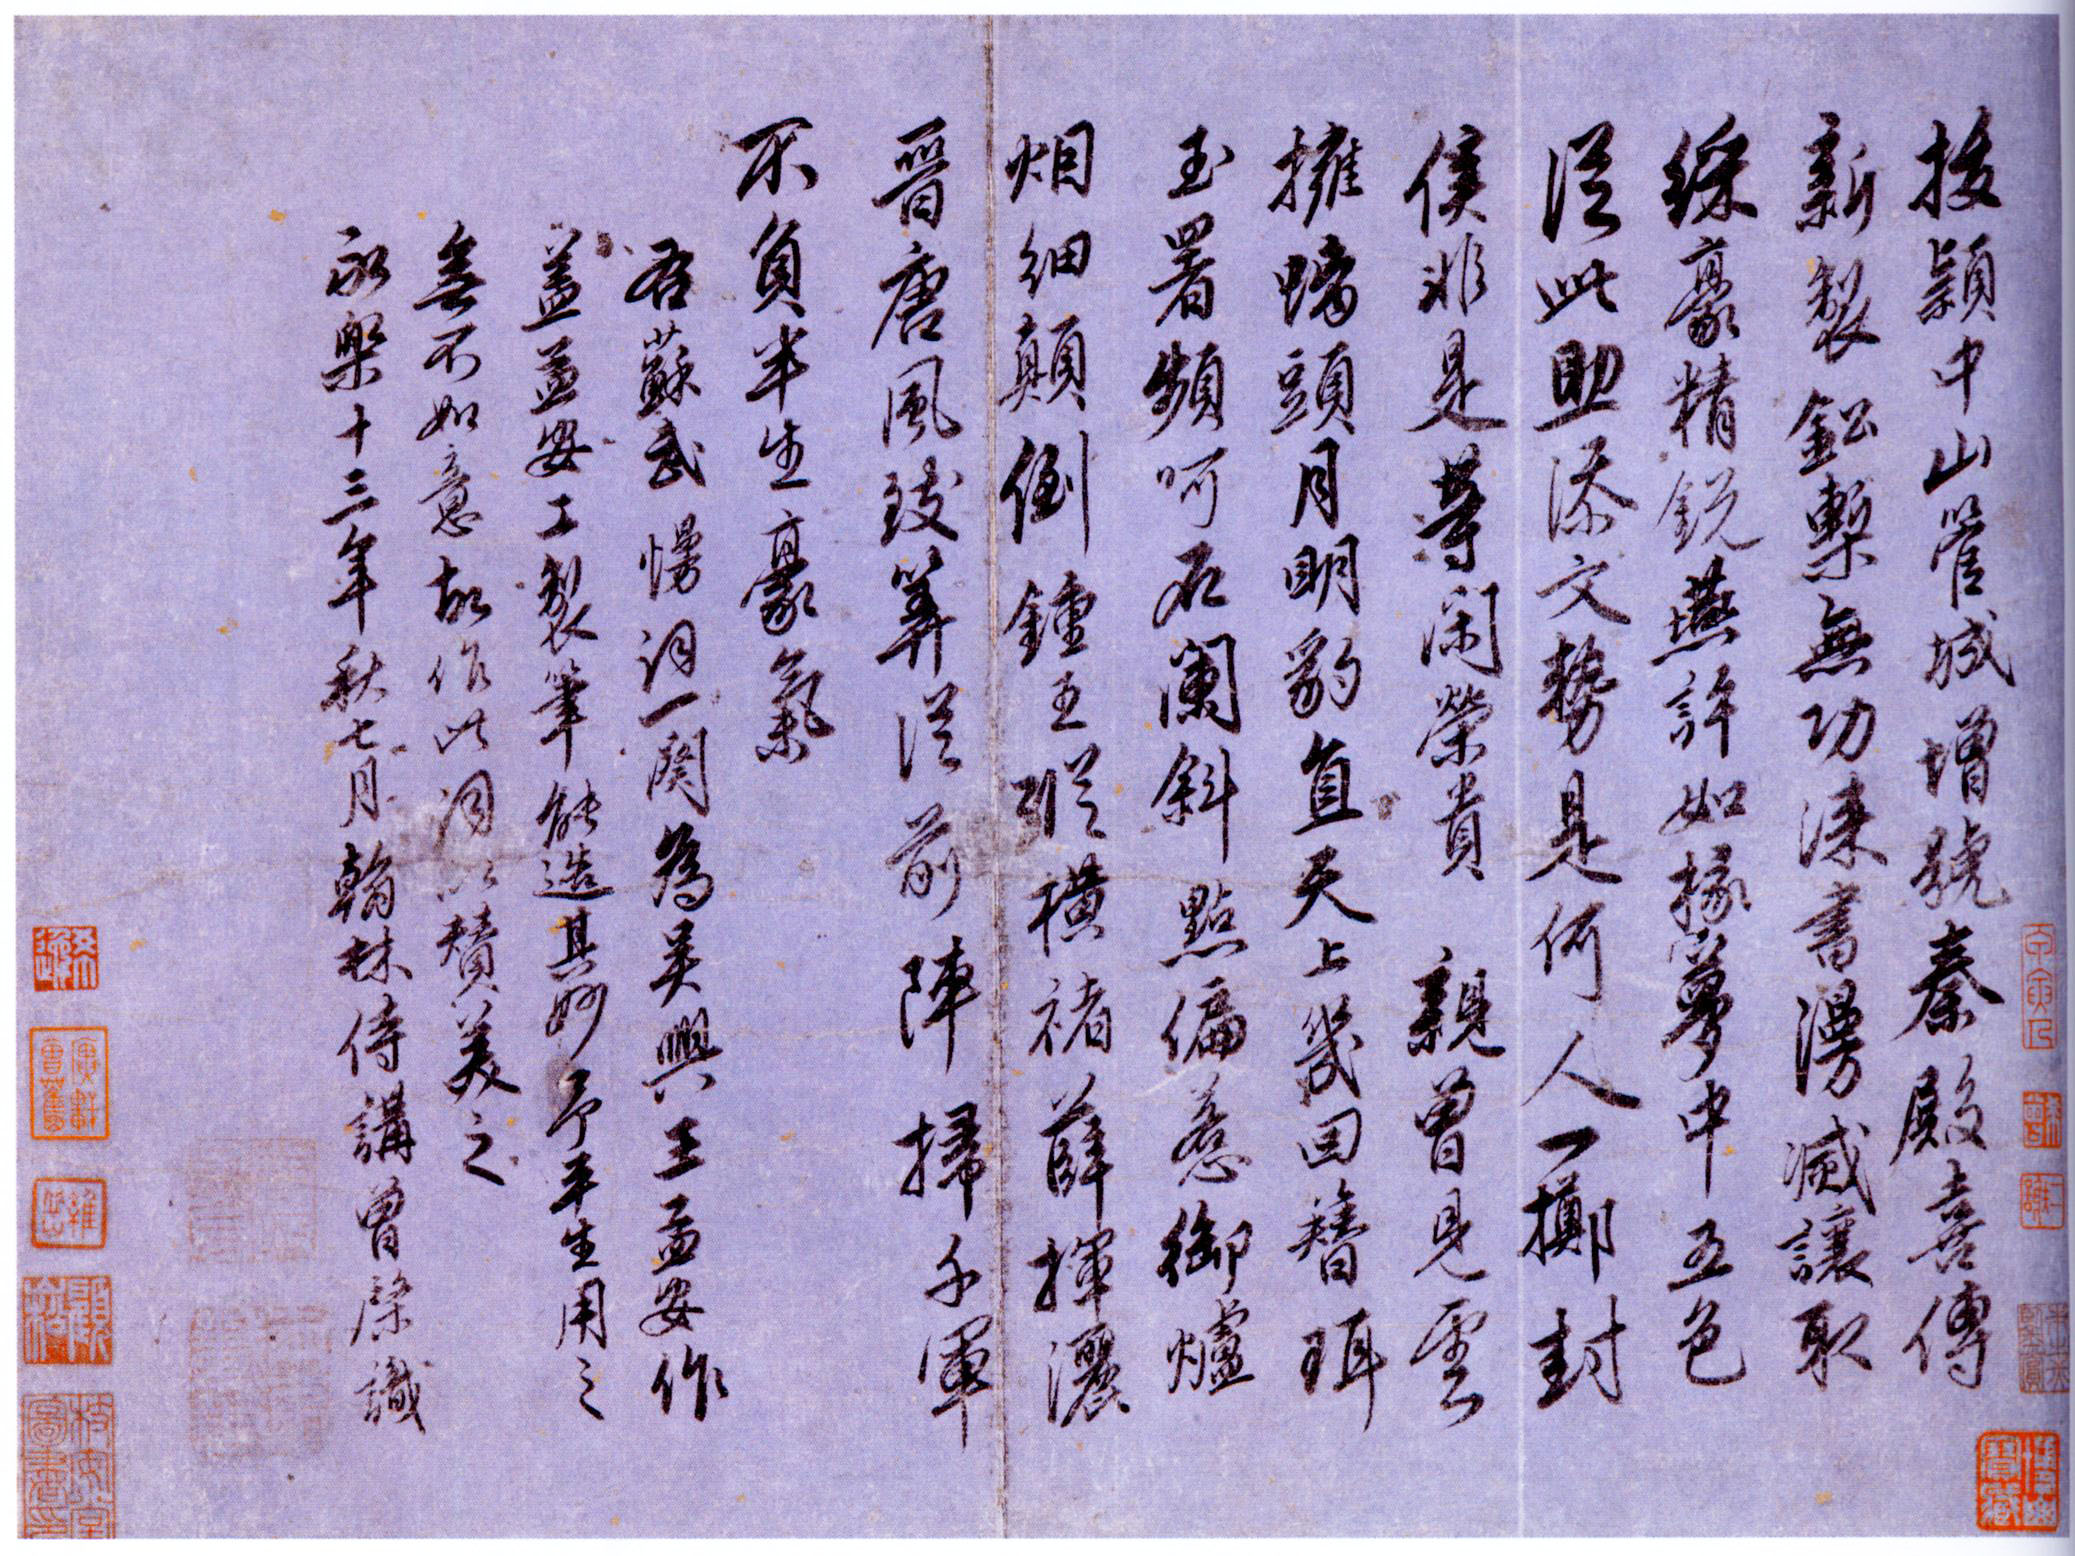 拔穎中山管城增號秦殿喜傳
新製鉛槧無功漆書漫滅讓取
綵豪精銳燕許如掾夢中五色
從此助添文勢是何人一擲封
侯非是等閑榮貴　親曾見雲
擁螭頭月明豹直天上幾回簪珥
玉署頻呵石闌斜點偏惹御爐
烟細顛倒鍾王縱橫褚薛揮灑
晉唐風致筭從前陣掃千軍
不負半生豪氣
右蘇武慢詞一闋為吳興王孟安作
蓋孟安工製筆能造其妙予平生用之
無不如意故作此詞以贊美之
永樂十三年秋七月翰林侍講曾棨識